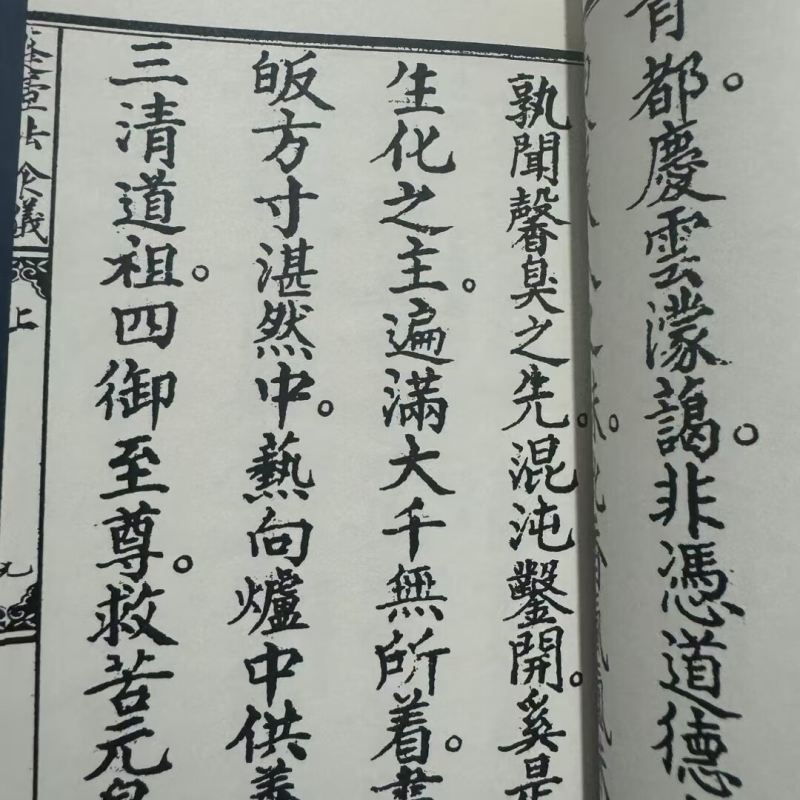 都。慶雲濛藹。非憑道德
孰聞馨臭之先。混沌鑿開。奚是
生化之主。遍滿大千無所着。
皈方寸湛然中。爇向爐中供養
三清道祖。四御至尊。救苦元皇
上